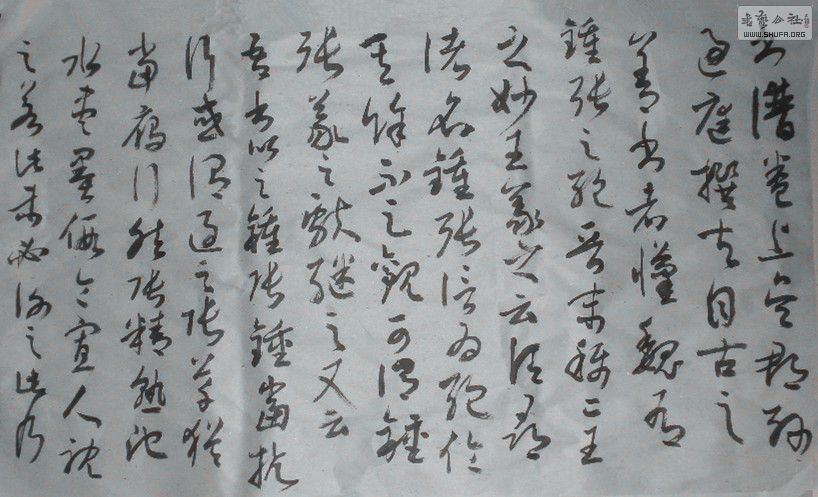 書譜卷上吳郡孫
過庭撰夫自古之
善書者漢魏有
鍾張之絕晉末稱二王
之妙王羲之云頃尋
諸名鍾張信為絕倫
其餘不足觀可謂鍾
張羲之獻繼之又云
吾書比之鍾張鍾當抗
行或謂過之張草猶
當雁行然張精熟池
水盡墨假令寡人耽
之若此未必謝之此乃
書藝公社
WWW.SHUFA.ORG